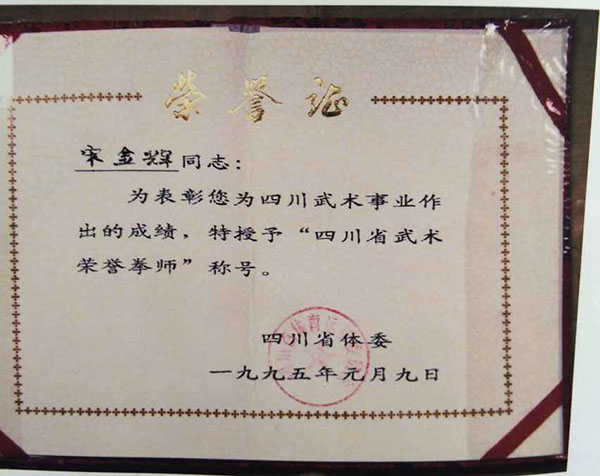 荣誉证
宋金辉同志：
为表彰您为四川武术事业作
出的成绩，特授予“四川省武术
荣誉拳师”称号。
四川省体委
一九九五年元月九日